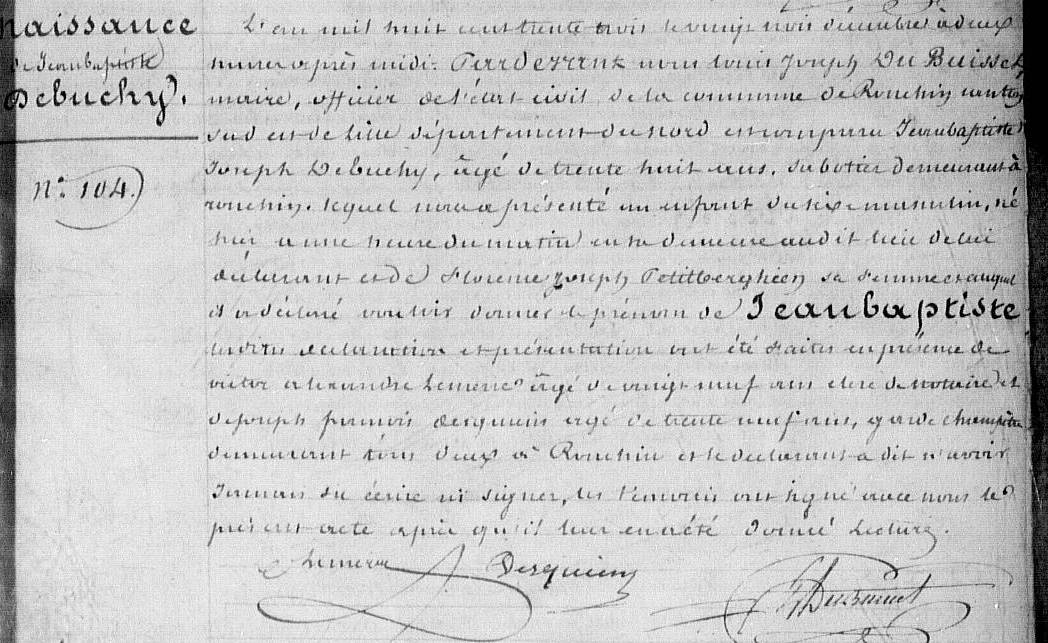 naissance
de Jeanbaptiste
Debuchy.
N.° 104.
L'an mil huit cent trente trois le vingt trois décembre à deux
heures après midi. Pardevant nous Louis Joseph Du Buisset
maire, officier de l'état civil de la commune de Ronchin canton
sud est de Lille département du nord est comparu Jeanbaptiste
Joseph Debuchy, âgé de trente huit ans, sabotier demeurant à
ronchin. lequel nous a présenté un enfant du sexe masculin, né
hier a une heure du matin en sa demeure audit lieu de lui
déclarant et de Florence Joseph Petitberghien sa femme et auquel
il a déclaré vouloir donner le prénom de Jeanbaptiste
lesdites déclaration et présentation ont été faites en présence de
victor alexandre Lemerre âgé de vingt neuf ans clerc de notaire et
de Joseph francois desquiens agé de trente neuf ans, garde champêtre
demeurant tous deux à Ronchin et le déclarant a dit n'avoir
Jamais su écrire ni signer, les témoins ont signé avec nous le
présent acte après qu'il leur en a été donné Lecture.
Lemerre Desquiens